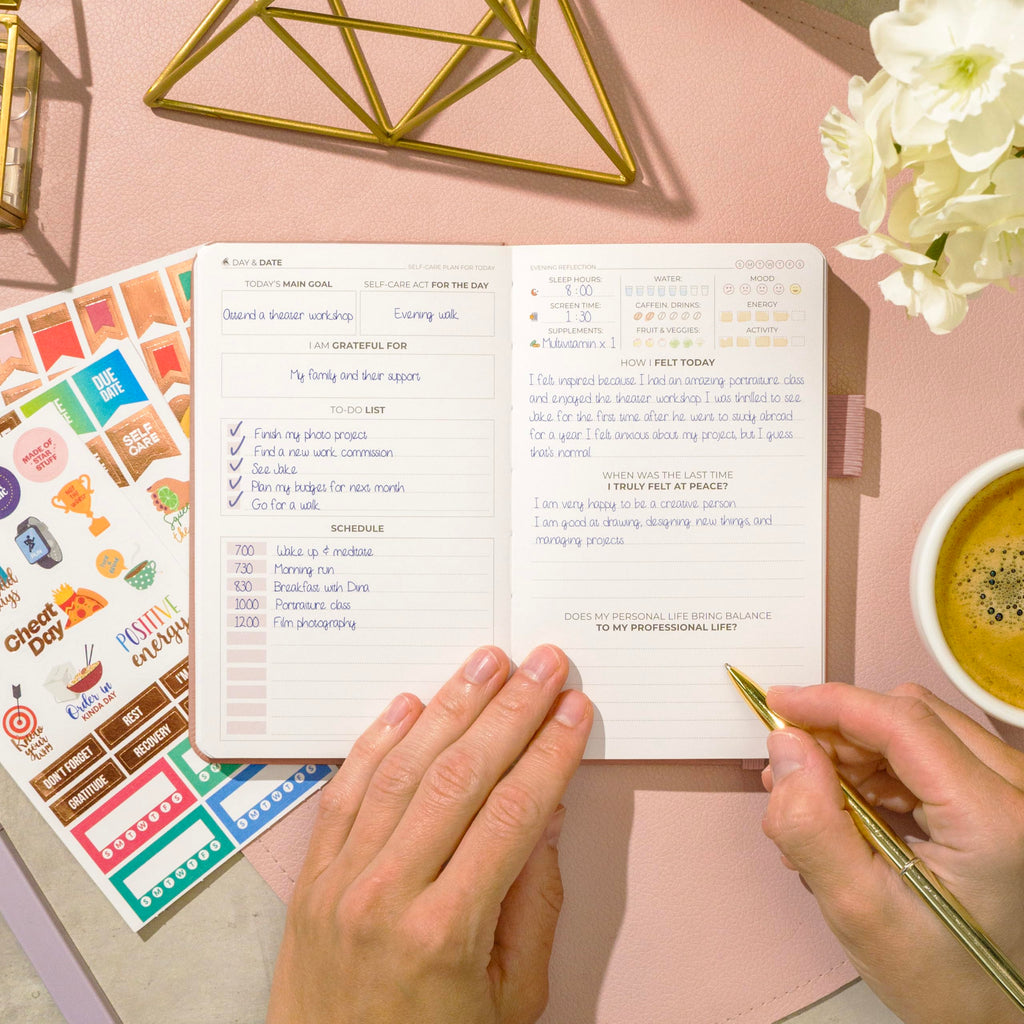 DAY & DATE
SELF-CARE PLAN FOR TODAY
TODAY'S MAIN GOAL
Attend a theater workshop
SELF-CARE ACT FOR THE DAY
Evening walk
I AM GRATEFUL FOR
My family and their support
TO-DO LIST
Finish my photo project
Find a new work commission
See Jake
Plan my budget for next month
Go for a walk
SCHEDULE
7:00 Wake up & meditate
7:30 Morning run
8:30 Breakfast with Dina
10:00 Portraiture class
12:00 Film photography
EVENING REFLECTION
S M T W T F S
SLEEP HOURS:
8:00
SCREEN TIME:
1:30
SUPPLEMENTS:
Multivitamin x 1
WATER:
CAFFEIN. DRINKS:
FRUIT & VEGGIES:
MOOD
ENERGY
ACTIVITY
HOW I FELT TODAY
I felt inspired because I had an amazing portraiture class
and enjoyed the theater workshop. I was thrilled to see
Jake for the first time after he went to study abroad
for a year. I felt anxious about my project, but I guess
that's normal.
WHEN WAS THE LAST TIME
I TRULY FELT AT PEACE?
I am very happy to be a creative person.
I am good at drawing, designing new things, and
managing projects.
DOES MY PERSONAL LIFE BRING BALANCE
TO MY PROFESSIONAL LIFE?
DUE
DATE
SELF
CARE
MADE OF
STAR
STUFF
RUN
Squeeze
the
Cheat
Day
POSITIVE
energy
Order in
KINDA DAY
Know
your
why
REST
DON'T FORGET
RECOVERY
GRATITUDE
S M T W T F S
S M T W T F S
S M T W T F S